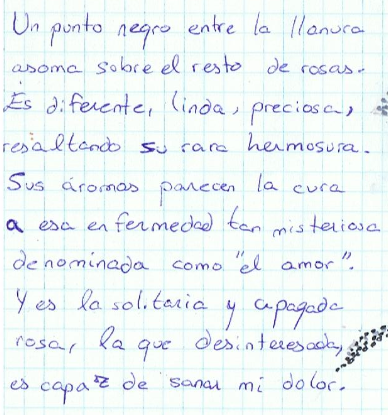 Un punto negro entre la llanura
asoma sobre el resto de rosas.
Es diferente, linda, preciosa,
resaltando su rara hermosura.
Sus áromas parecen la cura
a esa enfermedad tan misteriosa
denominada como "el amor".
Y es la solitaria y apagada
rosa, la que desinteresada,
es capaz de sanar mi dolor.